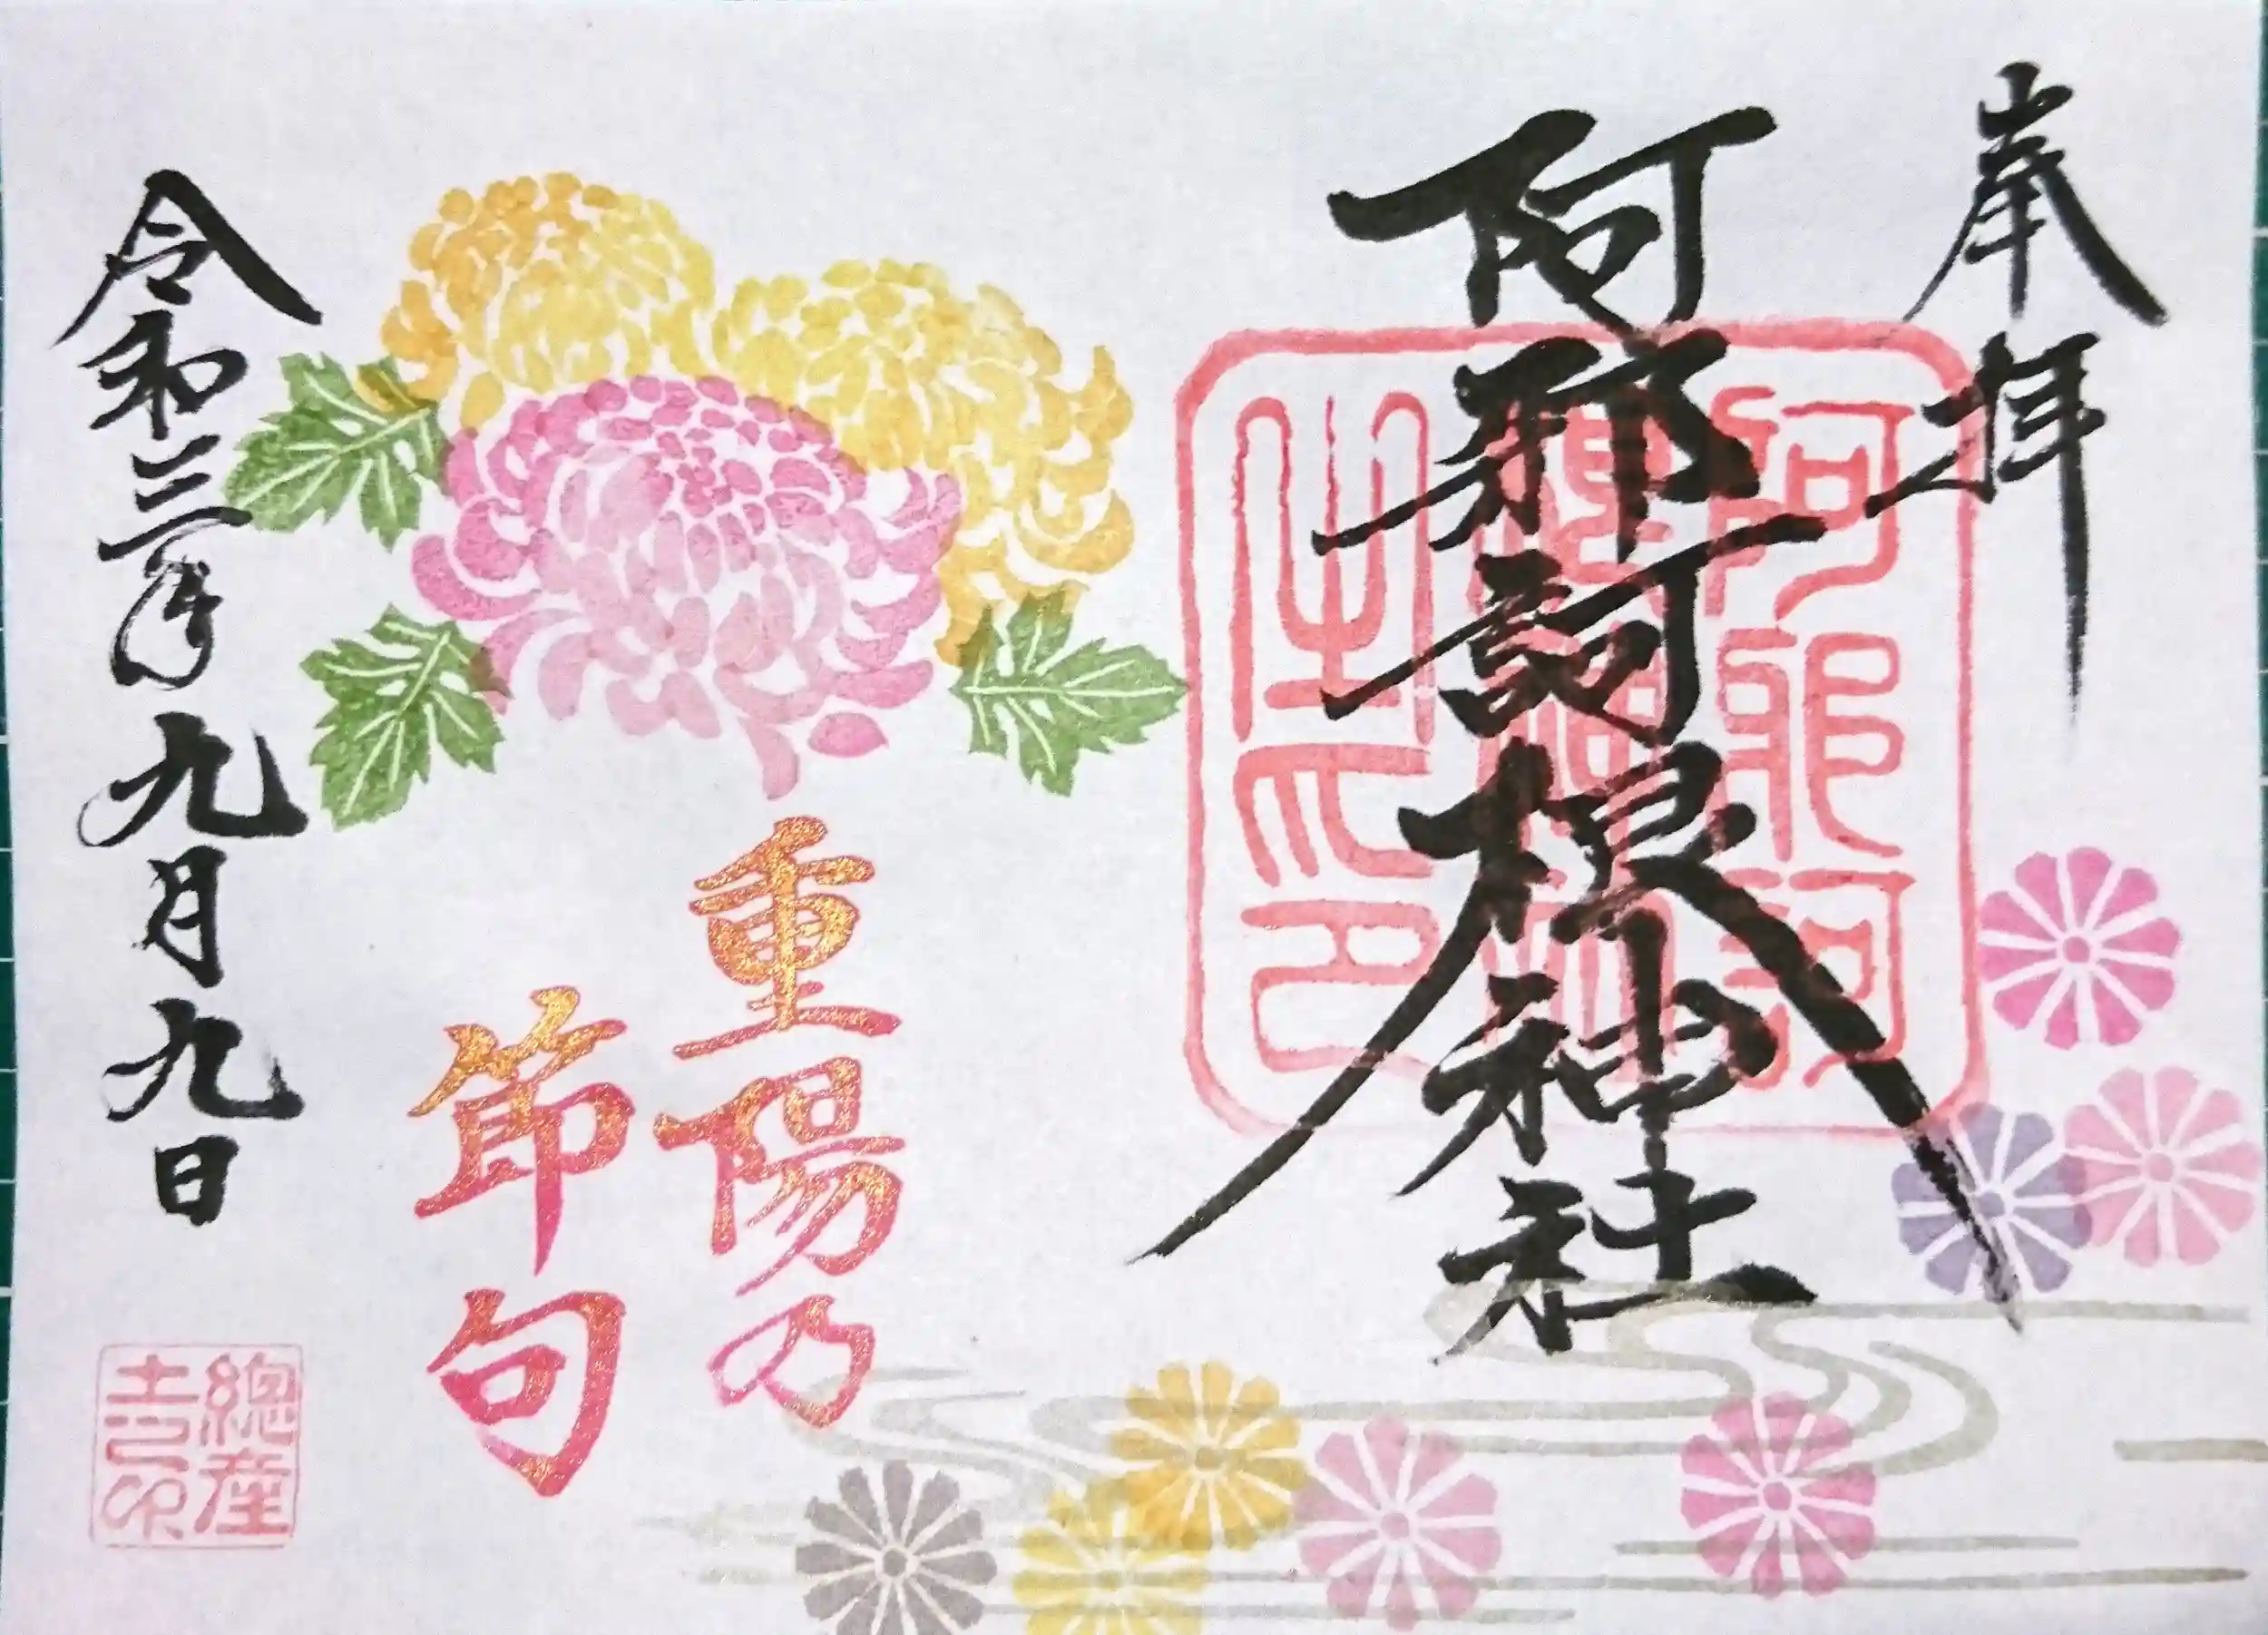 奉拝
阿邪訶根神社
阿邪訶
根神社
之印
重陽乃
節句
令和三年九月九日
總産
土印